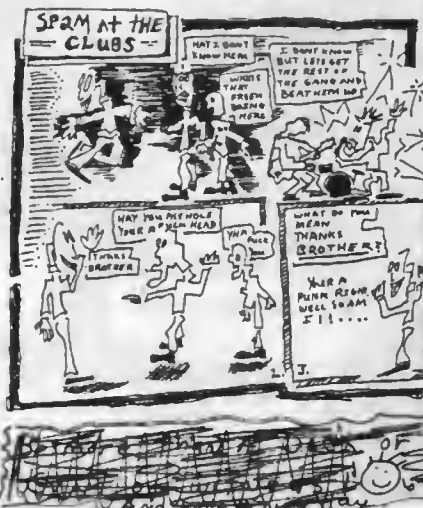 SPAM AT THE
CLUBS
HAY I DON'T
KNOW HEM
WHATS
THAT
FREEK
DOING
HERE
I DONT KNOW
BUT LETS GET
THE REST OF
THE GANG AND
BEAT HEM UP
THANKS
BROTHER
HAY YOU ASSHOLE
YOUR A FUCK HEAD
YHA
FUCK
YOU
2.
WHAT DO YOU
MEAN
THANKS
BROTHER?
YOUR A
PUNK RIGHT
WELL SO AM
I!!....
3.
OF